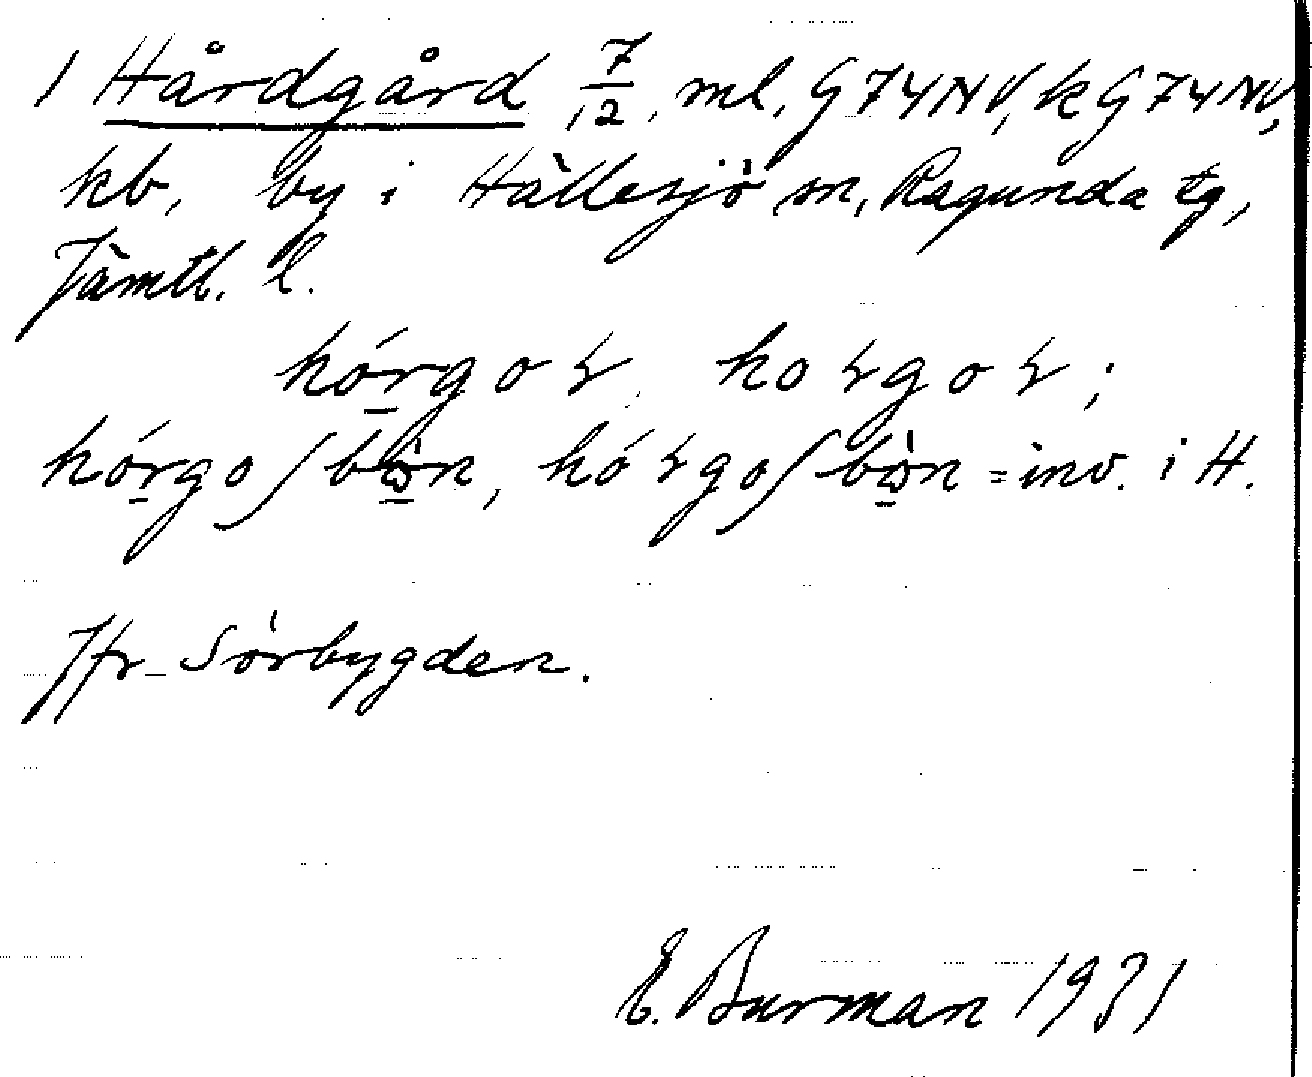 1 Hårdgård 7/12, ml, G74NV, k G74NV,
kb, by i Hällesjö sn, Ragunda tg,
Jämtl. l.
hó̱rgoɽ, hoɽgoɽ;
hó̱rgoʃbò̱n, hóɽgoʃbò̱n = inv. i H.
Jfr Sörbygden.
E. Burman 1931